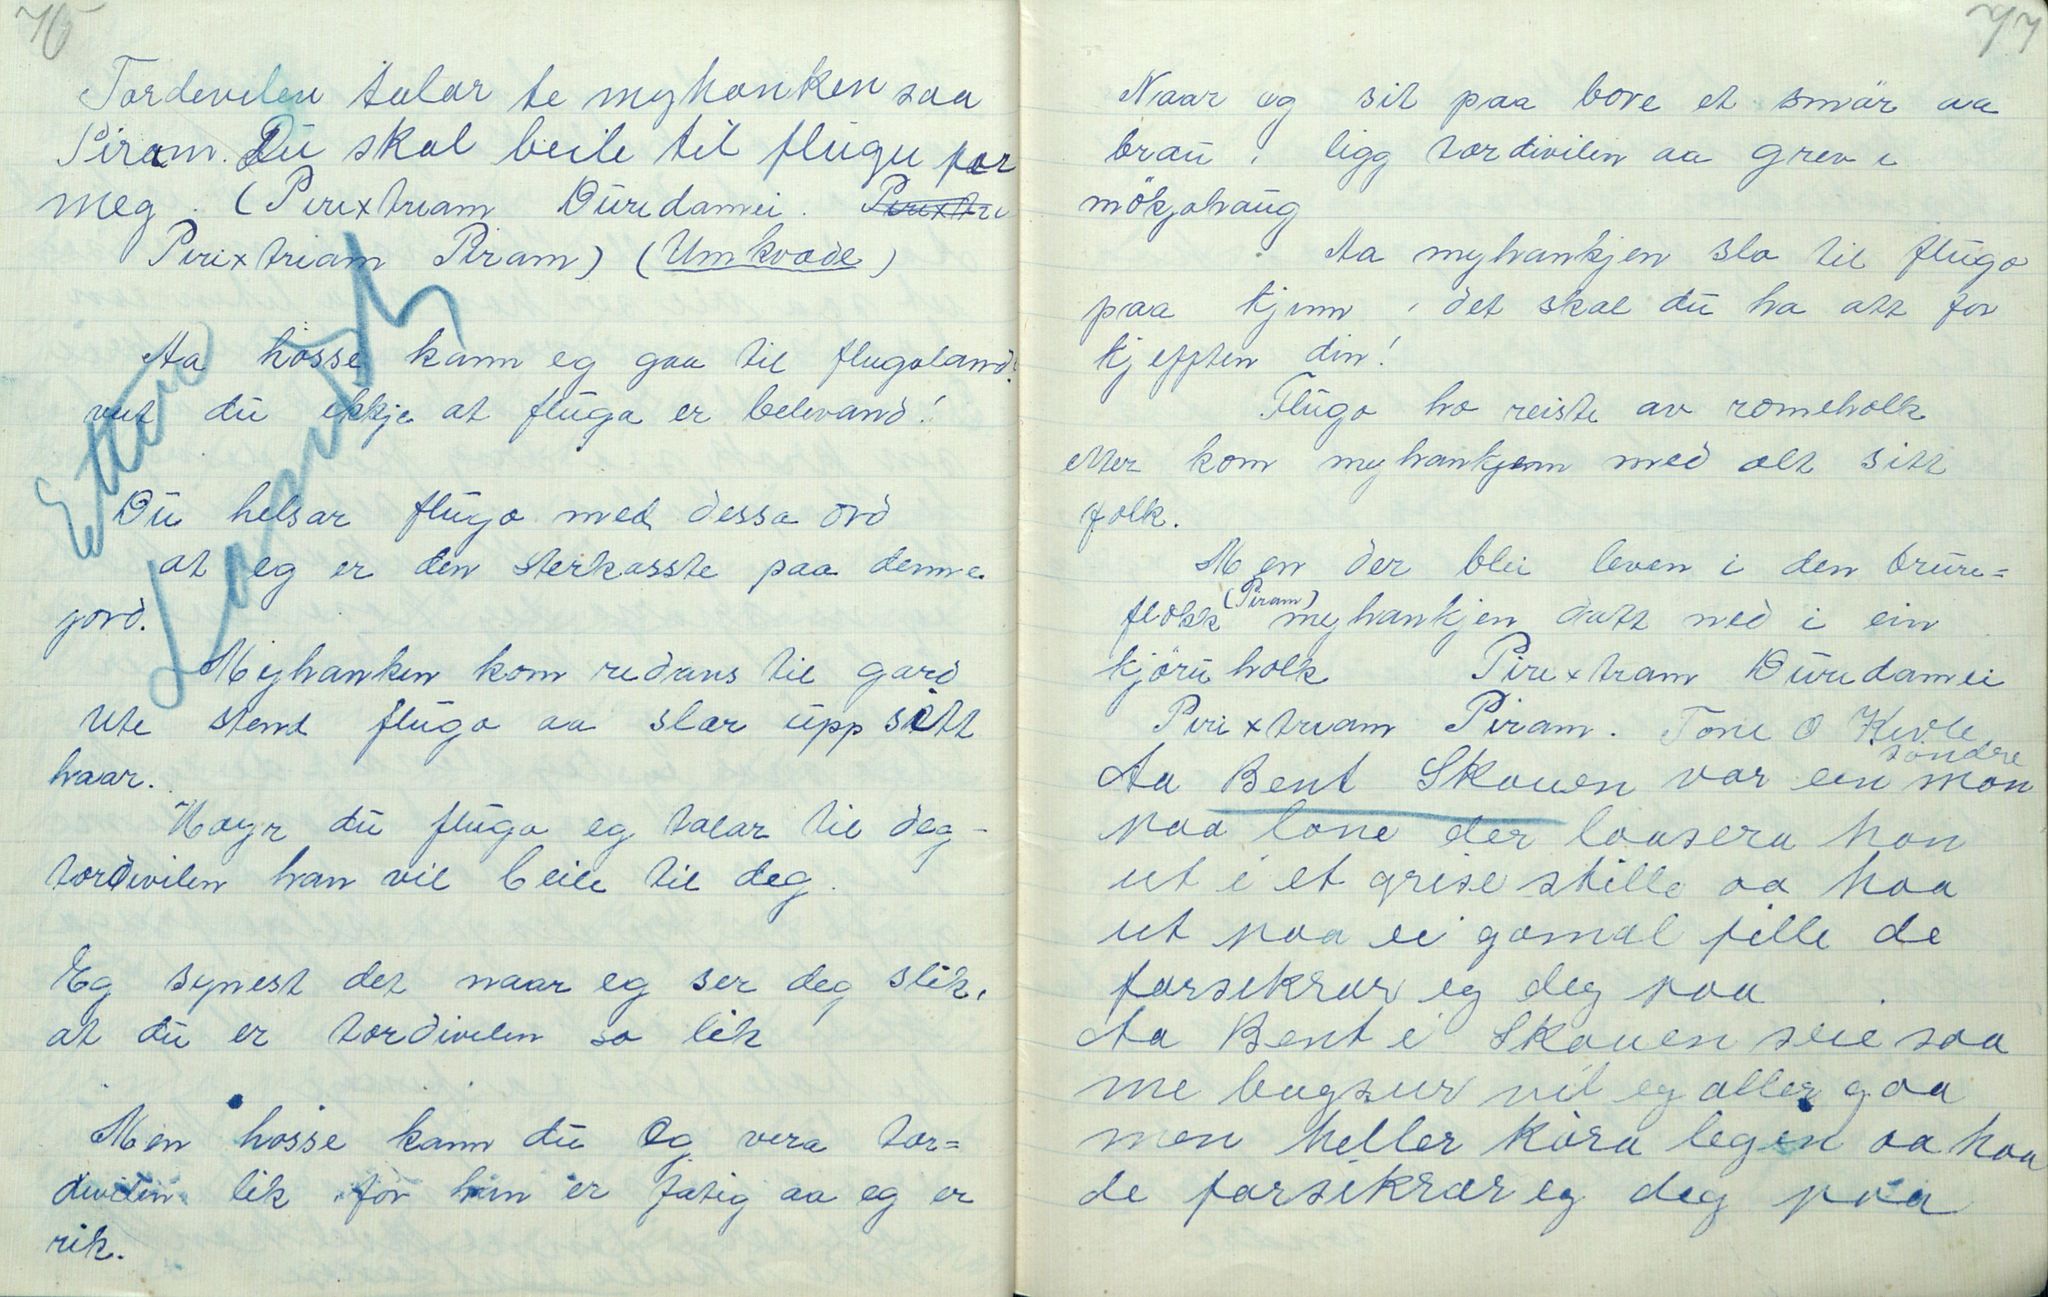 76
Tordevilen talar te myhanken saa
Piram. Du skal beile til flugu for
meg. (Pirixtriam Duridamei. Pirixtri
Pirixtriam Piram) (Umkvæde)
Aa hosse kann eg gaa til flugoland?
veit du ikkje at fluga er belevand!
Du helsar flugo med dessa ord
at eg er den sterkasste paa denne
jord.
Myhanken kom ridans til gard
Ute stend flugo aa slær upp sitt
haar.
Høyr du flugo eg talar til deg -
tordivilen han vil beile til deg.
Eg synest det naar eg ser deg slik,
at du er tordivilen so lik
Men hosse kann du og vera tor=
divilen lik for han er fatig aa eg er
rik.
77
Naar eg sit paa bore et smör aa
brau, ligg tordivilen aa grev i
mökjahaug
Aa myhankjen slo til flugo
paa kjinn, det skal du ha att for
kjefften din!
Flugo ho reiste av romeholk
etter kom myhankjenn med alt sitt
folk.
Men der blei leven i den brure=
flokk (Piram) myhankjen datt ned i ein
kjöruholk Pirixtriam Duridamei
Pirixtriam Piram. Tone O Kivle
söndre
Aa Bent Skouen var ein mon
paa lone der loasera han
ut i et grise stille aa haa
ut paa ei gamal fille de
forsikrar eg deg paa
Aa Bent i Skouen seie saa
me bugsur vil eg aller gaa
men heller köra legin aa haa
de forsikrar eg deg paa